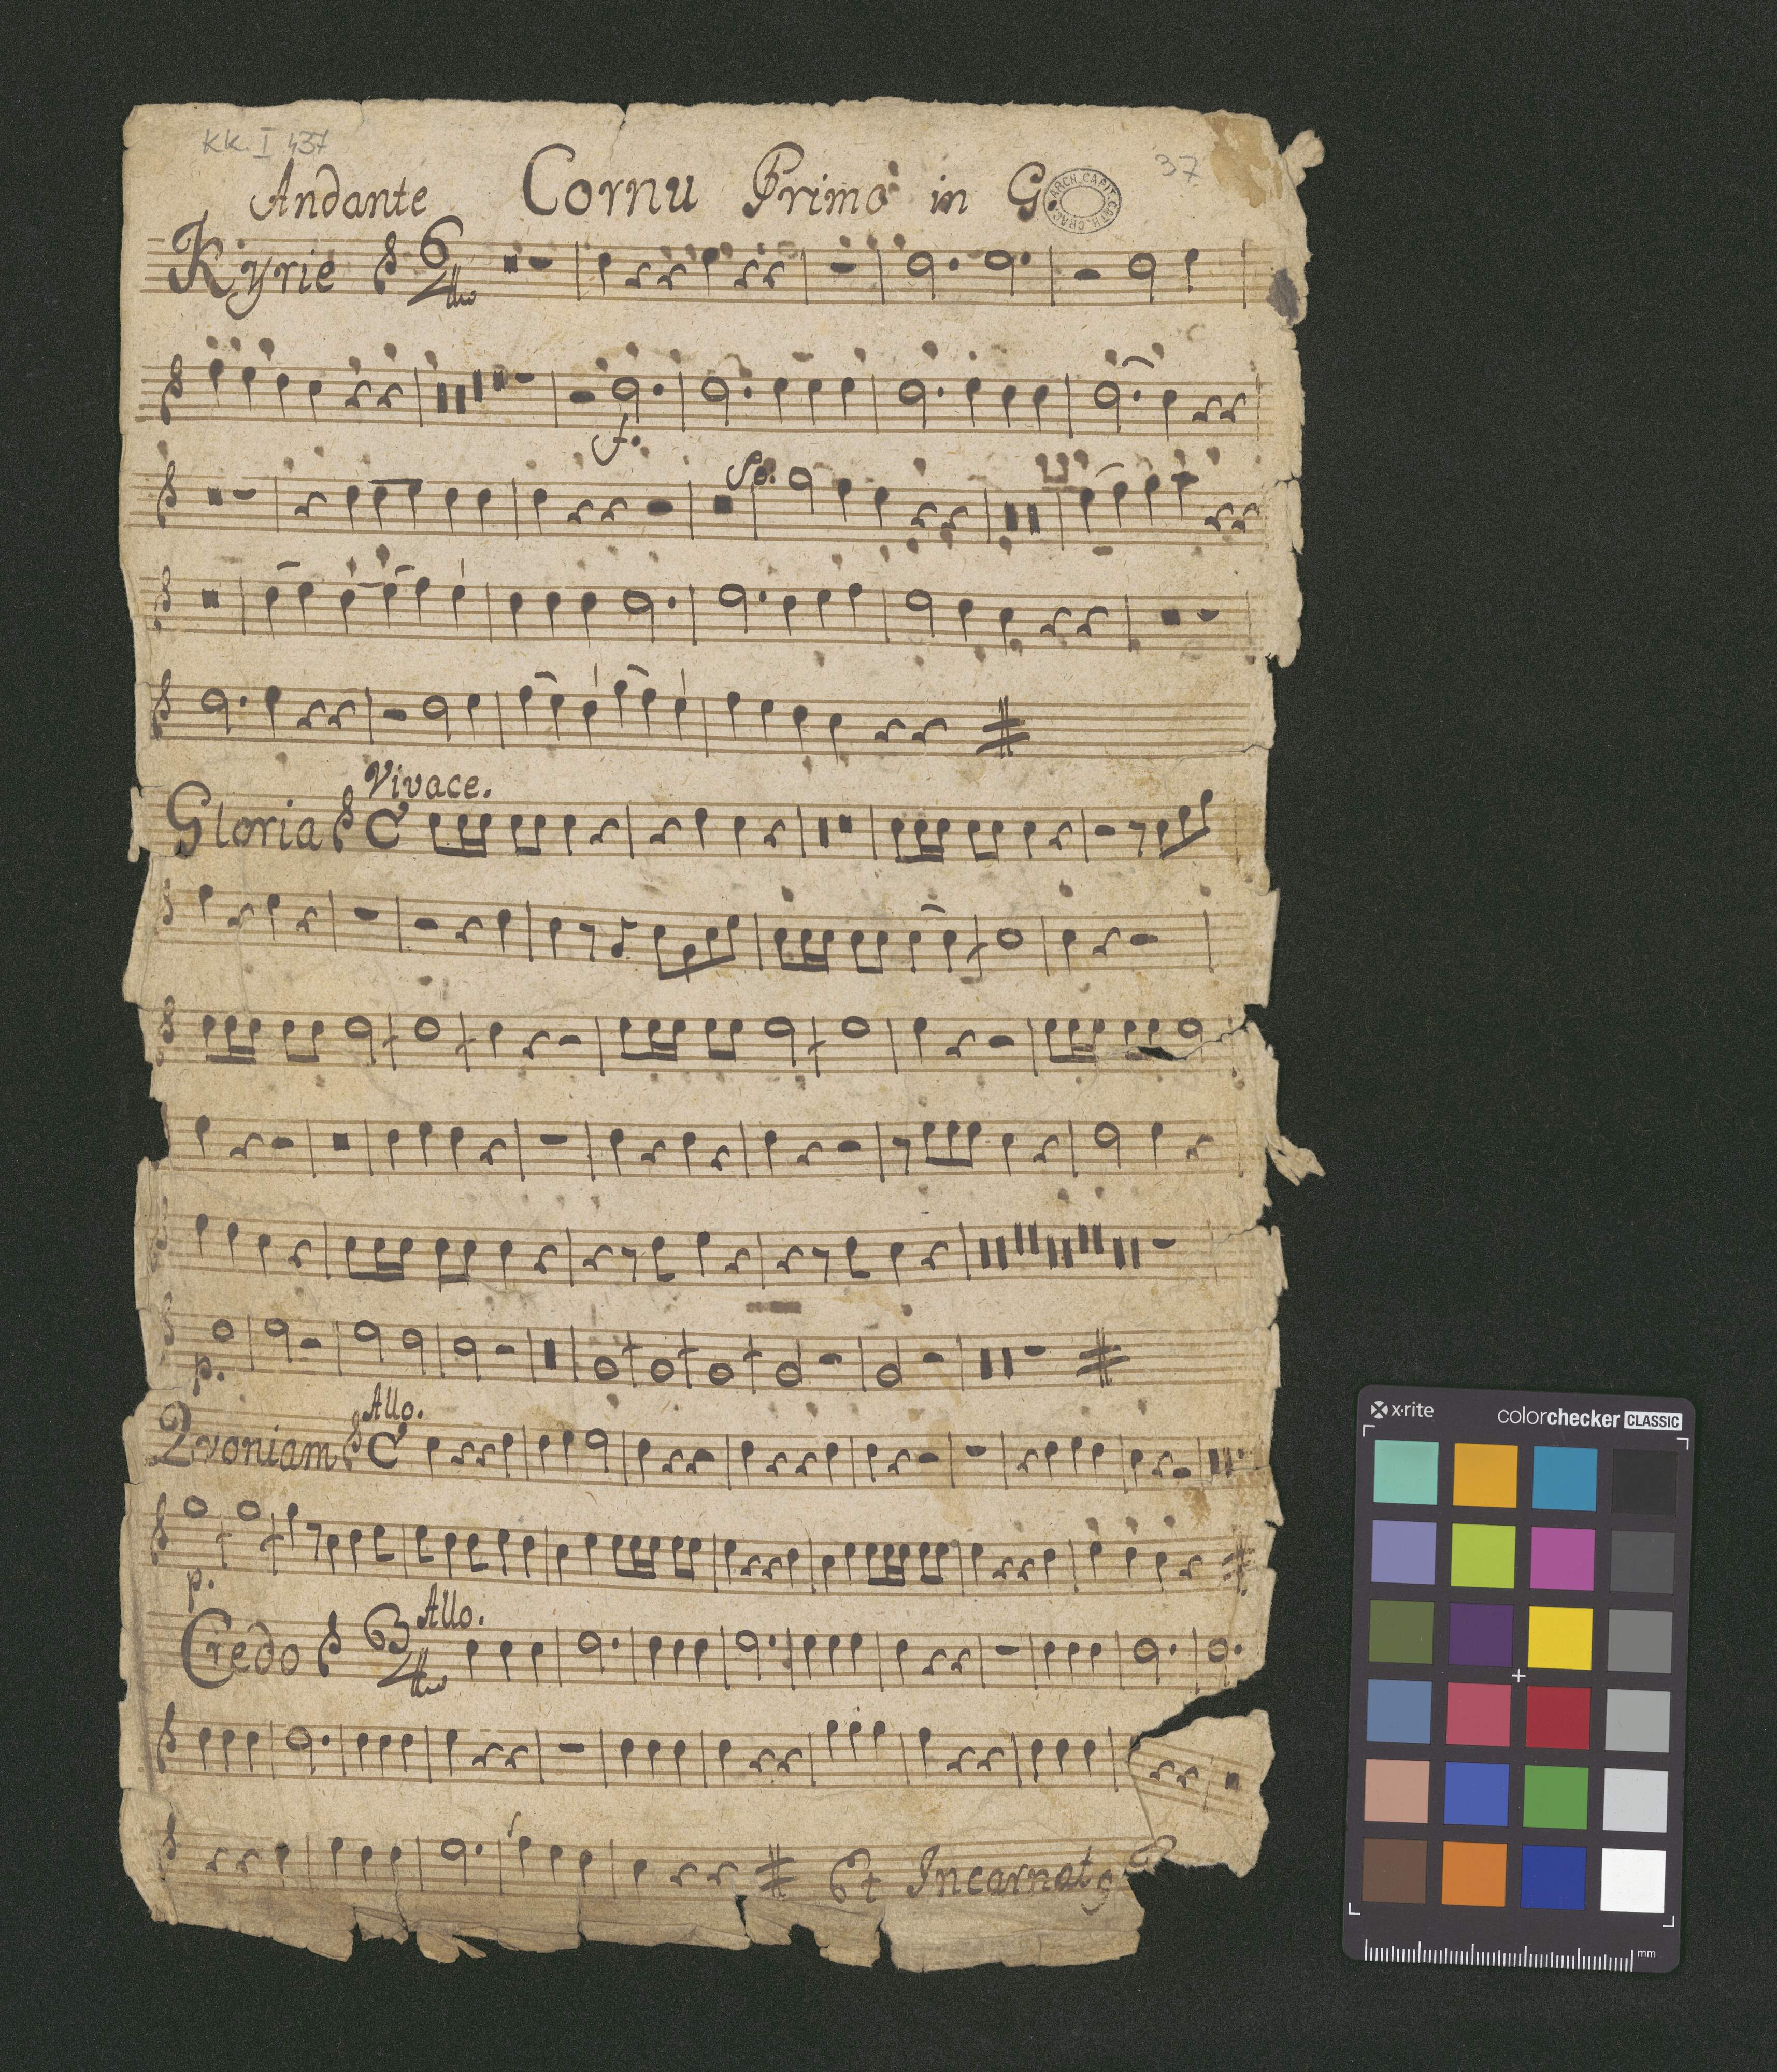 KK. I 437
37.
Andante Cornu Primo in G
ARCH. CAPIT. CATH. CRAC.
Kyrie 6 4
f.
So.
Vivace.
Gloria C
p.
Allo.
Qvoniam C
p.
Allo.
Credo 3 4
Et Incarnatg
x-rite colorchecker CLASSIC
mm